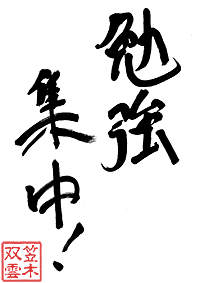 勉強
集中!
笠木
双雲